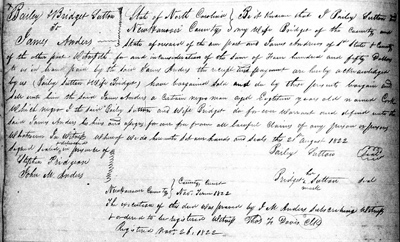 Bailey & Bridget Sutton
to
James Anders
State of North Carolina
New Hanover County
Be it Known that I Baily Sutton and
my wife Bridget of the County and
State of record of the one part and James Anders of sd State & County
of the other part Witnesseth for and in consideration of the sum of Four Hundred and fifty Dollars
to us in hand paid by the said James Anders the receipt & payment are hereby acknowledged
by us Bailey Sutton Wife Bridget have bargained Sold and do by this present bargain and
Sale unto him the said James Anders a certain negro man aged Eighteen years old named
Which negro I the said Baily Sutton and Wife Bridget do for ever Warrant and defend unto the
said James Anders his heirs and assigns for ever from all lawful Claims of any person or persons
Whatsoever In Witness whereof We do hereunto Set our hands and Seals the 2d August 1822
Signed Sealed in presence of
Baily Sutton Seal
Stephen Pridgean
John M. Anders
Bridget Sutton Seal
mark
New Hanover County
County Court
Nov. Term 1822
The execution of this deed was proved by J. M. Anders Subscribing Witness
& ordered to be registered Witness Tho. F. Davis Clk
Registered Nov. 26. 1822